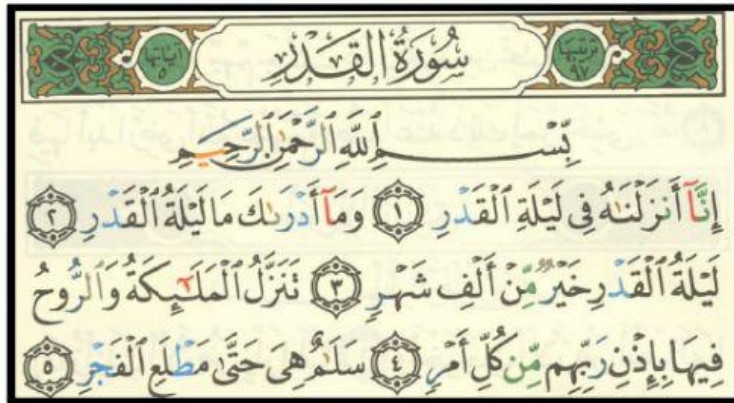 ترتيبها ٩٧ سُورَةُ القَدْرِ آياتها ٥
بِّسْمِ ٱللَّهِ ٱلرَّحْمَٰنِ ٱلرَّحِيمِ
إِنَّآ أَنزَلْنَٰهُ فِى لَيْلَةِ ٱلْقَدْرِ ١ وَمَآ أَدْرَىٰكَ مَا لَيْلَةُ ٱلْقَدْرِ ٢
لَيْلَةُ ٱلْقَدْرِ خَيْرٌ مِّنْ أَلْفِ شَهْرٍ ٣ تَنَزَّلُ ٱلْمَلَٰٓئِكَةُ وَٱلرُّوحُ
فِيهَا بِإِذْنِ رَبِّهِم مِّن كُلِّ أَمْرٍ ٤ سَلَٰمٌ هِىَ حَتَّىٰ مَطْلَعِ ٱلْفَجْرِ ٥